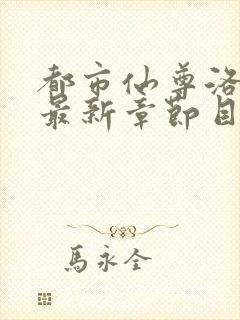 都市仙尊洛
最新章节目
馬永全